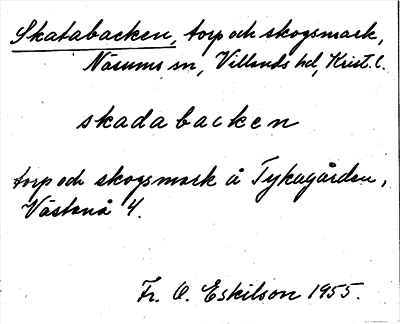 Skatabacken, torp och skogsmark,
Näsums sn, Villands hd, Krist. l.
skadabacken
torp och skogsmark å Tykagården,
Västanå 4.
Fr. O. Eskilson 1955.